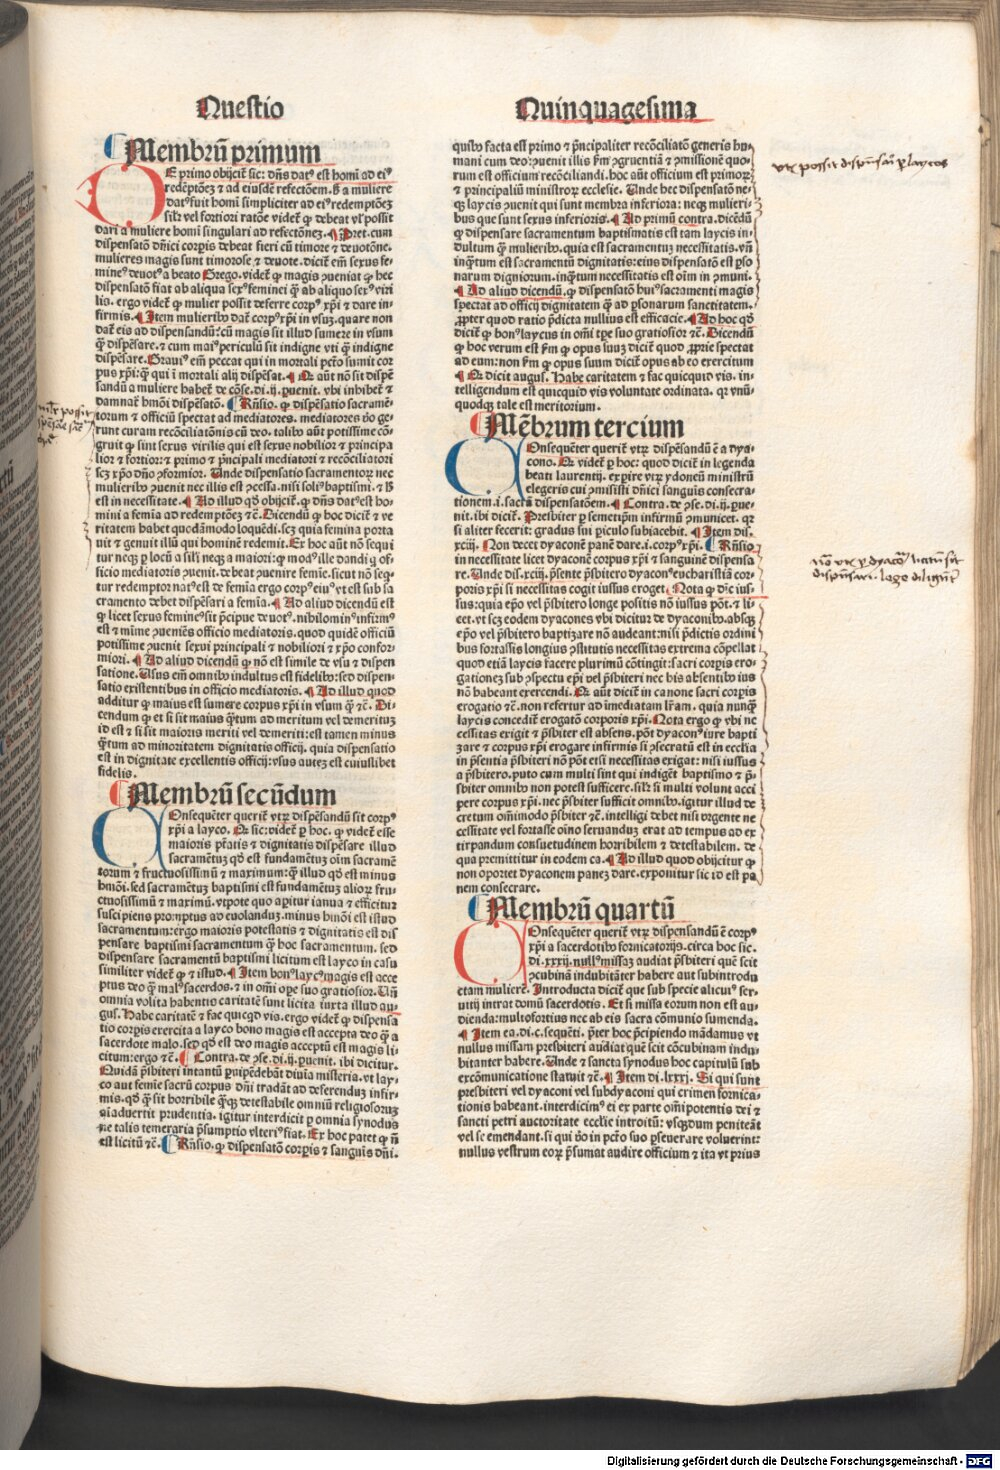 Questio
Quinquagesima
Membrū primum
DE primo obijcit̄ sic: dn̄s dat⁹ est homī ad ei⁹
redēptōeꝫ ⁊ ad eiusdē refectōem. ꝫ a muliere
dat⁹ fuit homī simpliciter ad ei⁹ redemptōeꝫ
silr̄ vel fortiori ratōe videt̄ ꝙ debeat vl̓ possit
dari a muliere homī singulari ad refectōneꝫ. ¶ Pret. cum
dispensatō dn̄ici corpīs debeat fieri cū timore ⁊ deuotōne.
mulieres magis sunt timorose ⁊ deuote. dicit̄ em̄ sexus fe-
mine⁹ deuot⁹ a beato Grego. videt̄ ꝙ magis ꝓueniat ꝙ hec
dispensatō fiat ab aliqua sex⁹ feminei q̄ꝫ ab aliquo sex⁹ viri
lis. ergo videt̄ ꝙ mulier possit deferre corp⁹ xp̄i ⁊ dare in-
firmis. ¶ Item mulieribꝰ dat̄ corp⁹ xp̄i in vsuꝫ. quare non
dat̄ eis ad dispensandū: cū magis sit illud sumere in vsum
q̄ꝫ dispēsare. ⁊ cum mai⁹ periculū sit indigne vti q̄ꝫ indigne
dispēsare. Graui⁹ em̄ peccat qui in mortali pctō sumit cor
pus xp̄i: q̄ꝫ qui ī mortali alij dispēsat. ¶ Qꝫ aūt nō sit dispē
sandū a muliere habet̄ de cōse. di. ij. ꝑuenit. vbi inhibet̄ ⁊
damnat̄ hmōi dispēsatō. ¶ Rn̄sio. ꝙ dispēsatio sacramē-
torum ⁊ officiū spectat ad mediatores. mediatores v̄o ge-
runt curam recōciliatiōnis cū deo. talibꝰ aūt potissime cō-
gruit ꝙ sint sexus virilis qui est sexus nobilior ⁊ principa
lior ⁊ fortior: ⁊ primo ⁊ p̄ncipali mediatori ⁊ recōciliatori
scꝫ xp̄o dn̄o ꝯformior. Unde dispensatio sacramentoꝝ nec
mulieribꝰ ꝓuenit nec illis est ꝯcessa. nisi soli⁹ baptismi. ⁊ ꝫ
est in necessitate. ¶ Ad illud qd̄ obijcit̄. ꝙ dn̄s dat⁹ est ho-
mini a femīa ad redemptōeꝫ ⁊c̄. Dicendū ꝙ hoc dicit̄ ⁊ ve
ritatem habet quodāmodo loquēdi. scꝫ quia femina porta
uit ⁊ genuit illū qui hominē redemit. Ex hoc aūt nō sequi
tur neqꝫ ꝑ locū a sil̄i neqꝫ a maiori: ꝙ mod⁹ ille dandi q̄ of-
ficio mediatoris ꝓuenit. debeat ꝓuenire femīe. sicut nō seq̄-
tur redemptor nat⁹ est de femīa ergo corp⁹ ei⁹ vt est sub sa
cramento debet dispēsari a femīa. ¶ Ad aliud dicendū est
ꝙ licet sexus femine⁹ sit p̄cipue de uot⁹. nihilomin⁹ infirm⁹
est ⁊ mīme ꝓueniēs officio mediatoris. quod quidē officiū
potissime ꝓuenit sexui principali ⁊ nobiliori ⁊ xp̄o confor-
miori. ¶ Ad aliud dicendū ꝙ nō est simile de vsu ⁊ dispen
satione. Usus em̄ omnibꝰ indultus est fidelibꝰ: sed dispen-
satio existentibus in officio mediatoris. ¶ Ad illud quod
additur ꝙ maius est sumere corpus xp̄i in vsum q̄ꝫ ⁊c̄. Di
cendum ꝙ et si sit maius q̄ꝫtum ad meritum vel demerituꝫ
id est ⁊ si sit maioris meriti vel demeriti: est tamen minus
q̄ꝫtum ad minoritatem dignitatis officij. quia dispensatio
est in dignitate excellentis officij: vsus auteꝫ est cuiuslibet
fidelis.
Membrū secūdum
COnsequēter querit̄ vtrꝫ dispēsandū sit corp⁹
xp̄i a layco. Qꝫ sic: videt̄ ꝑ hoc. ꝙ videt̄ esse
maioris p̄tatis ⁊ dignitatis dispēsare illud
sacramētuꝫ qd̄ est fundamētuꝫ oīm sacramē
torum ⁊ fructuosissimū ⁊ maximum: q̄ꝫ illud qd̄ est minus
hmōi. sed sacramētuꝫ baptismi est fundamētuꝫ alioꝝ fru-
ctuosissimū ⁊ maximū. vtpote quo apitur ianua ⁊ efficitur
suscipiens promptus ad euolanduꝫ. minus hmōi est istud
sacramentum: ergo maioris potestatis ⁊ dignitatis est dis
pensare baptismi sacramentum q̄ꝫ hoc sacramentum. sed
dispensare sacramentū baptismi licitum est layco in casu
similiter videt̄ ꝙ ⁊ istud. ¶ Item bon⁹ layc⁹ magis est acce
ptus deo q̄ꝫ mal⁹ sacerdos. ⁊ in om̄i ope suo gratiosior. Uñ
omnia volita habentio caritatē sunt licita iuxta illud au-
gus. Habe caritatē ⁊ fac quicqd̄ vis. ergo videt̄ ꝙ dispensa
tio corpīs exercita a layco bono magis est accepta deo q̄ꝫ a
sacerdote malo. sed qd̄ est deo magis acceptū est magis li-
citum: ergo ⁊c̄. ¶ Contra. de ꝯse. di. ij. ꝑuenit. ibi dicitur.
Quidā p̄sbiteri intantū ꝑuipēdebāt diuīa misteria. vt lay-
co aut femīe sacrū corpus dn̄i tradāt ad deferenduꝫ infir-
mis. qd̄ q̄ꝫ sit horribile q̄ꝫqꝫ detestabile omniū religiosoruꝫ
aīaduertit prudentia. igitur interdicit ꝑ omnia synodus
ne talis temeraria p̄sumptio vlteri⁹ fiat. Ex hoc patet ꝙ n̄
est licitū ⁊c̄. ¶ Rn̄sio. ꝙ dispensatō corpīs ⁊ sanguīs dn̄i.
quibꝰ facta est primo ⁊ p̄ncipaliter recōciliatō generis hu-
mani cum deo: ꝓuenit illis ẜm ꝯgruentiā ⁊ ꝓmissionē quo-
rum est officium recōciliandi. hoc aūt officium est primoꝝ
⁊ principaliū ministroꝝ ecclesie. Unde hec dispensatō ne-
qꝫ laycis ꝓuenit qui sunt membra inferiora: neqꝫ mulieri-
bus que sunt sexus inferioris. ¶ Ad primū contra. dicēdū
ꝙ dispensare sacramentum baptismatis est tam laycis in-
dultum q̄ꝫ mulieribꝰ. quia est sacramentuꝫ necessitatis. vñ
inq̄ꝫtum est sacramentū dignitatis: eius dispensatō est ꝑso
narum digniorum. inq̄ꝫtum necessitatis est oīm in ꝯmuni.
¶ Ad aliud dicendū. ꝙ dispensatō hui⁹ sacramenti magis
spectat ad officij dignitatem q̄ꝫ ad ꝑsonarum sanctitatem.
ꝓpter quod ratio p̄dicta nullius est efficacie. ¶ Ad hoc qd̄
dicit̄ ꝙ bon⁹ laycus in om̄i tꝑe suo gratiosior ⁊c̄. Dicendū
ꝙ hoc verum est ẜm ꝙ opus suuꝫ dicit̄ quod ꝓprie spectat
ad eum: non ẜm ꝙ opus suum dicit̄ opus ab eo exercitum
¶ Qꝫ dicit augus. Habe caritatem ⁊ fac quicquid vis. in-
telligendum est quicquid vis voluntate ordinata. qꝛ vnū-
quodqꝫ tale est meritorium.
Mēbrum tercium
COnsequēter querit̄ vtrꝫ dispēsandū ē a dya-
cono. Qꝫ videt̄ ꝑ hoc: quod dicit̄ in legenda
beati laurentij. experire vtꝫ ydoneū ministrū
elegeris cui ꝯmisisti dn̄ici sanguīs consecra-
tionem. i. sacrā dispensatōem. ¶ Contra. de ꝯse. di. ij. ꝑue-
nit. ibi dicit̄. Presbiter ꝑ semetip̄m infirmū ꝯmunicet. qꝛ
si aliter fecerit: gradus sui ꝑiculo subiacebit. ¶ Item dis.
xciij. Non decet dyaconē panē dare. i. corp⁹ xp̄i. ¶ Rn̄sio
in necessitate licet dyaconē corpus xp̄i ⁊ sanguinē dispensa
re. Unde dis. xciij. p̄sente p̄sbitero dyacon⁹ eucharistiā cor-
poris xp̄i si necessitas cogit iussus eroget. Nota ꝙ d̄ꝛ ius-
sus: quia ep̄o vel p̄sbitero longe positis nō iussus pōt. ⁊ li-
cet. vt scꝫ eodem dyacones vbi dicitur de dyaconibꝰ. absqꝫ
ep̄o vel p̄sbitero baptizare nō audeant: nisi p̄dictis ordini
bus fortassis longius ꝯstitutis necessitas extrema cōpellat
quod etiā laycis facere plurimū cōtingit: sacri corpīs ero-
gationeꝫ sub ꝯspectu ep̄i vel p̄sbiteri nec his absentibꝰ ius
nō habeant exercendi. Qꝫ aūt dicit̄ in canone sacri corpīs
erogatio ⁊c̄. non refertur ad imediatam lr̄am. quia nunq̄ꝫ
laycis concedit̄ erogatō corporis xp̄i. Nota ergo ꝙ vbi ne
cessitas exigit ⁊ p̄sbiter est absens. pōt dyacon⁹ iure bapti
zare ⁊ corpus xp̄i erogare infirmis si ꝯsecratū est in ecclīa
in p̄sentia p̄sbiteri nō pōt etsi necessitas exigat: nisi iussus
a p̄sbitero. puto cum multi sint qui indigēt baptismo ⁊ p̄-
sbiter omnibꝰ non potest sufficere. silr̄ si multi volunt acci
pere corpus xp̄i. nec p̄sbiter sufficit omnibꝰ. igitur illud de
cretum om̄imodo p̄sbiter ⁊c̄. intelligi debet nisi vrgente ne
cessitate vel fortasse oīno seruanduꝫ erat ad tempus ad ex
tirpandum consuetudinem horribilem ⁊ detestabilem. de
qua premittitur in eodem ca. ¶ Ad illud quod obijcitur ꝙ
non oportet dyaconem paneꝫ dare. exponitur sic id est pa
nem consecrare.
Membrū quartū
COnsequēter querit̄ vtrꝫ dispensandū ē corp⁹
xp̄i a sacerdotibꝰ fornicatorijs. circa hoc sic.
di. xxxij. null⁹ missaꝫ audiat p̄sbiteri quē scit
ꝯcubinā indubitāter habere aut subintrodu
ctam mulierē. Introducta dicit̄ que sub specie alicui⁹ ser-
uitij intrat domū sacerdotis. Et si missa eorum non est au-
dienda: multofortius nec ab eis sacra cōmunio sumenda.
¶ Item ea. di. c. sequēti. p̄ter hoc p̄cipiendo mādamus vt
nullus missam presbiteri audiat quē scit cōcubinam indu-
bitanter habere. Unde ⁊ sancta synodus hoc capitulū sub
excōmunicatione statuit ⁊c̄. ¶ Item di. lxxxj. Si qui sunt
presbiteri vel dyaconi vel subdyaconi qui crimen fornica-
tionis habeant. interdicim⁹ ei ex parte om̄ipotentis dei ⁊
sancti petri auctoritate ecclīe introitū: vsqꝫdum peniteāt
vel se emendant. si qui v̄o in pctō suo ꝑseuerare voluerint:
nullus vestrum eoꝝ p̄sumat audire officium ⁊ ita vt prius
vtꝫ possit dispensari ꝑ laycos
Digitalisierung gefördert durch die Deutsche Forschungsgemeinschaft - DFG